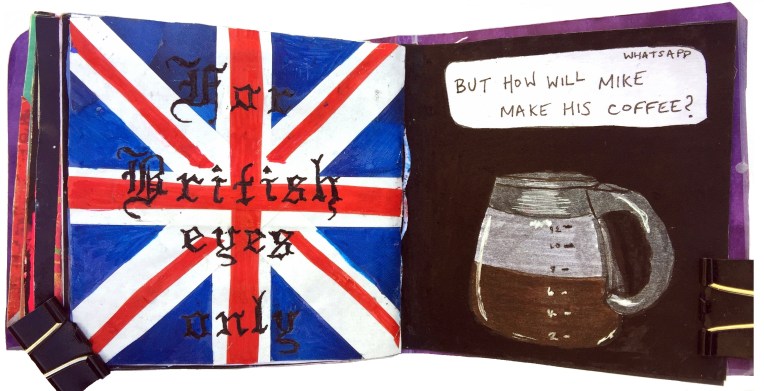 For
British
eyes
only
WHATSAPP
BUT HOW WILL MIKE
MAKE HIS COFFEE?
12
10
8
6
4
2